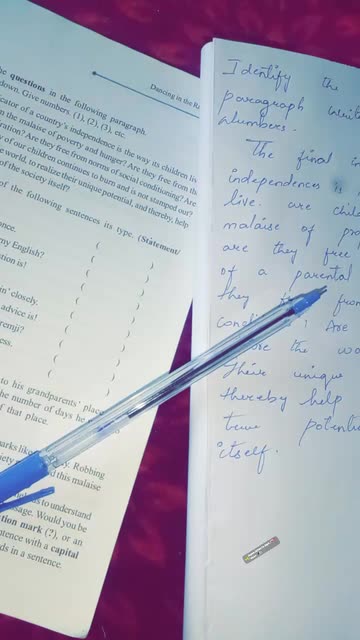 Dancing in the R
he questions in the following paragraph.
down. Give numbers. (1), (2), (3), etc.
icator of a country's independence is the way its children li
n the malaise of poverty and hunger? Are they free from the
ration? Are they free from norms of social conditioning? Are
y of our children continues to burn and is not stamped out?
e world, to realize their unique potential, and thereby, help
of the society itself?
of the following sentences its type. (Statement/
ance.
my English?
tion is!
in' closely.
advice is!
renji?
ess.
to his grandparents' place
he number of days he
f that place.
arks like
Robbing
iety
d this malaise
us to understand
sage. Would you be
tion mark (?), or an
ntence with a capital
ds in a sentence.
Identify the
paragraph
numbers.
The final in
independences is
live. are chil
malaise of po
are they free
of a parental
they fro
condi Are
the wo
Their unique
thereby help
potenti
itself.